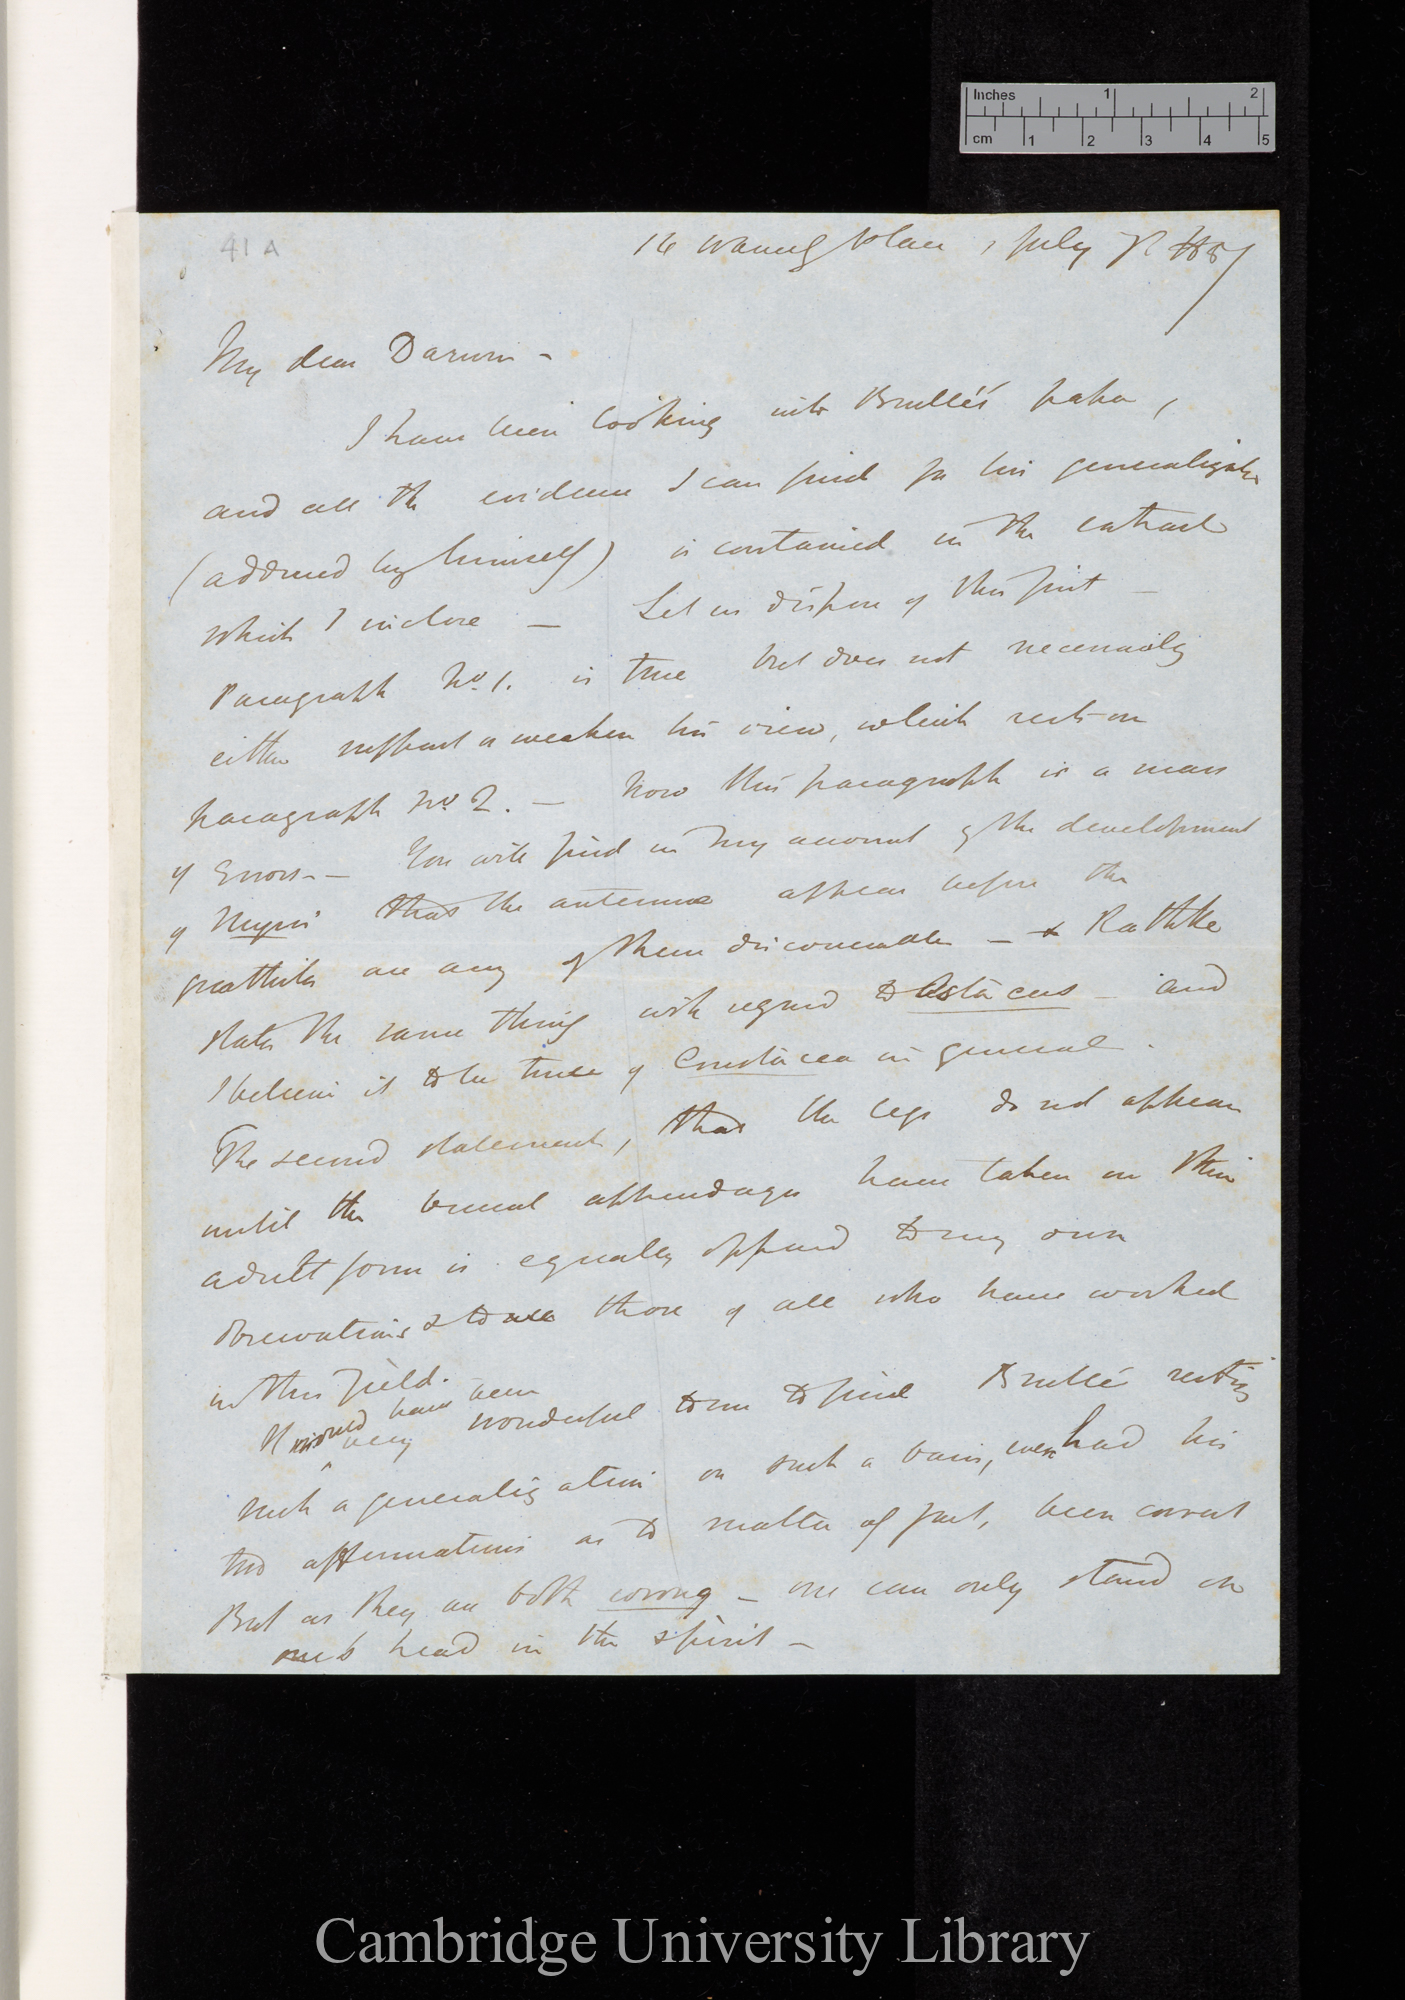 Inches 1 2
cm 1 2 3 4 5
41A
14 Waverly Place, July 7th 1857
My dear Darwin –
I have been looking into Brullé's paper,
and all the evidence I can find for his generalization
(adduced by himself) is contained in the extract
which I inclose — Let us dispose of this first –
Paragraph No. 1. is true but does not necessarily
either support or weaken his view, which rests on
paragraph No. 2. – Now this paragraph is a mass
of Errors – – You will find in my account of the development
of Mysis that the antennæ appear before the
gnathites are any of them discernible – & Rathke
states the same thing with regard to Astacus – and
I believe it to be true of Crustacea in general.
The second statement, that the legs do not appear
until the buccal appendages have taken on their
adult form is equally opposed to my own
observations & to those of all who have worked
in this field.
It would have been
very wonderful to me to find Brullé resting
such a generalization on such a basis, even had his
two affirmations as to matter of fact, been correct
But as they are both wrong – one can only stand on
one's head in the spirit –
Cambridge University Library